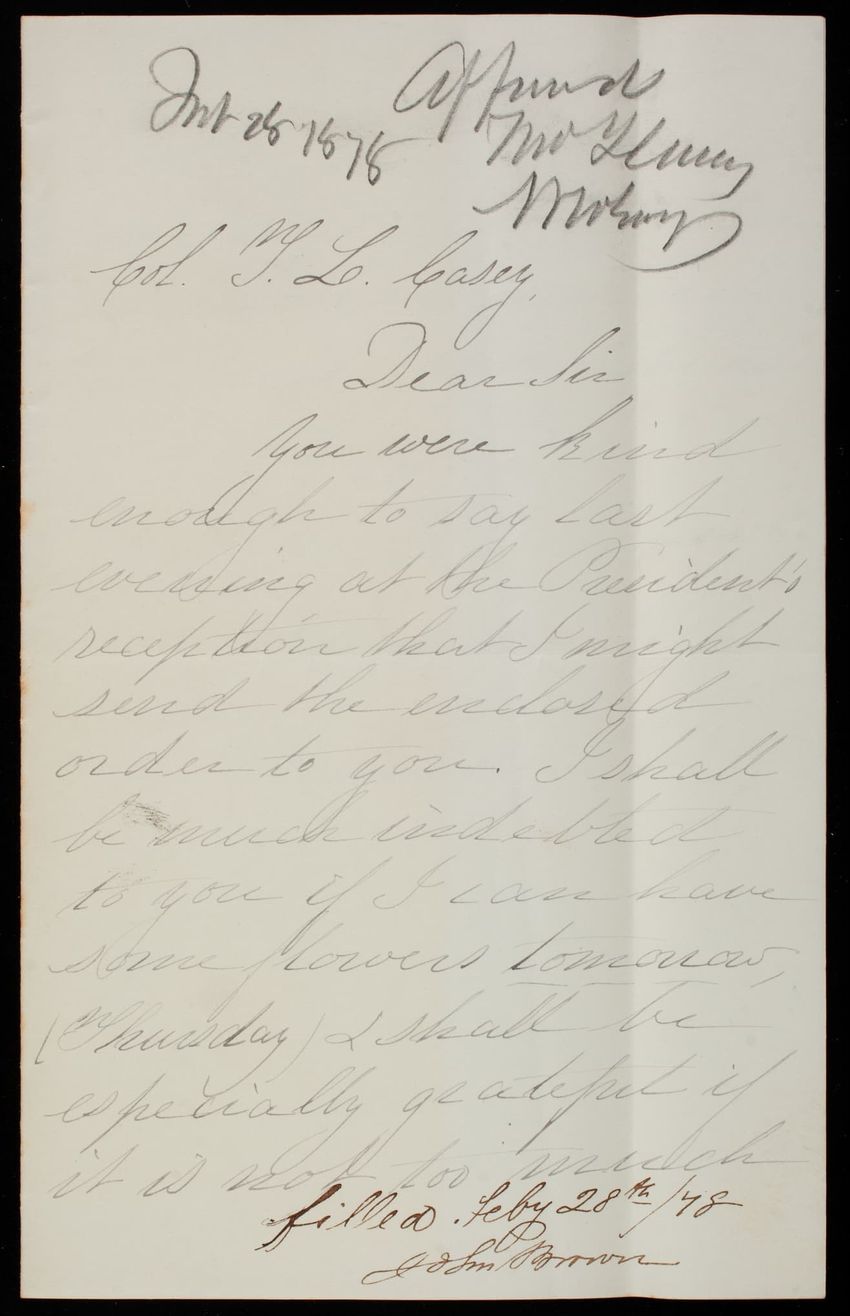 28 1878
Col. T. L. Casey,
Dear Sir
You were kind
enough to say last
evening at the President's
reception that I might
send the enclosed
order to you. I shall
be much indebted
to you if I can have
some flowers tomorrow,
(Thursday) & shall be
especially grateful if
it is not too much
filled. Feby 28th/78
John Brown